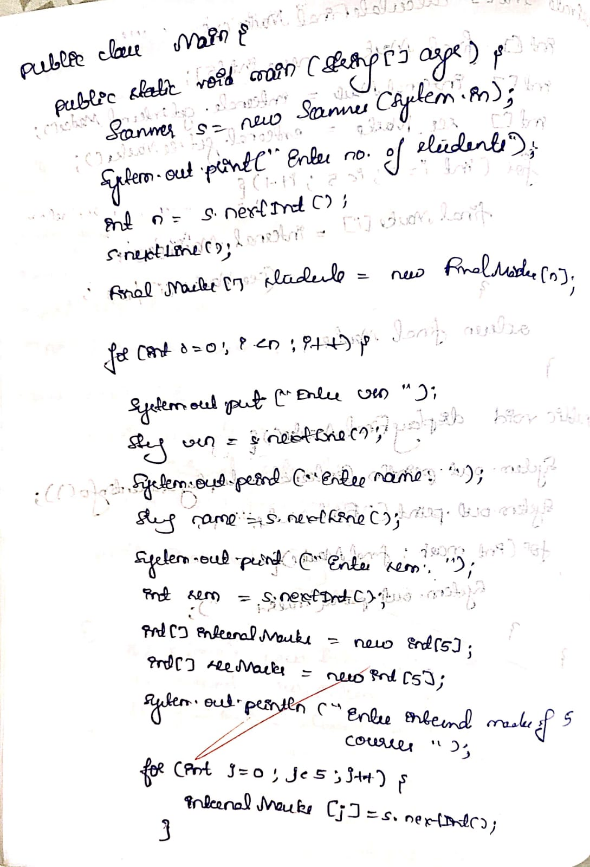 public class Main {
public static void main (String [] args) {
Scanner s = new Scanner (System.in);
System.out.print(" Enter no. of students");
int n = s.nextInt ();
s.nextLine();
Final Marks [] students = new FinalMarks [n];
for (int i=0; i<n ; i++) {
System.out.print (" Enter usn ");
String usn = s.nextLine();
System.out.print (" Enter name: ");
String name = s.nextLine();
System.out.print (" Enter sem: ");
int sem = s.nextInt();
int [] internal Marks = new int[5];
int [] see Marks = new int [5];
System.out.println (" Enter internal marks of 5
courses ");
for (int j=0 ; j<5 ; j++) {
internal Marks [j] = s.nextInt();
}